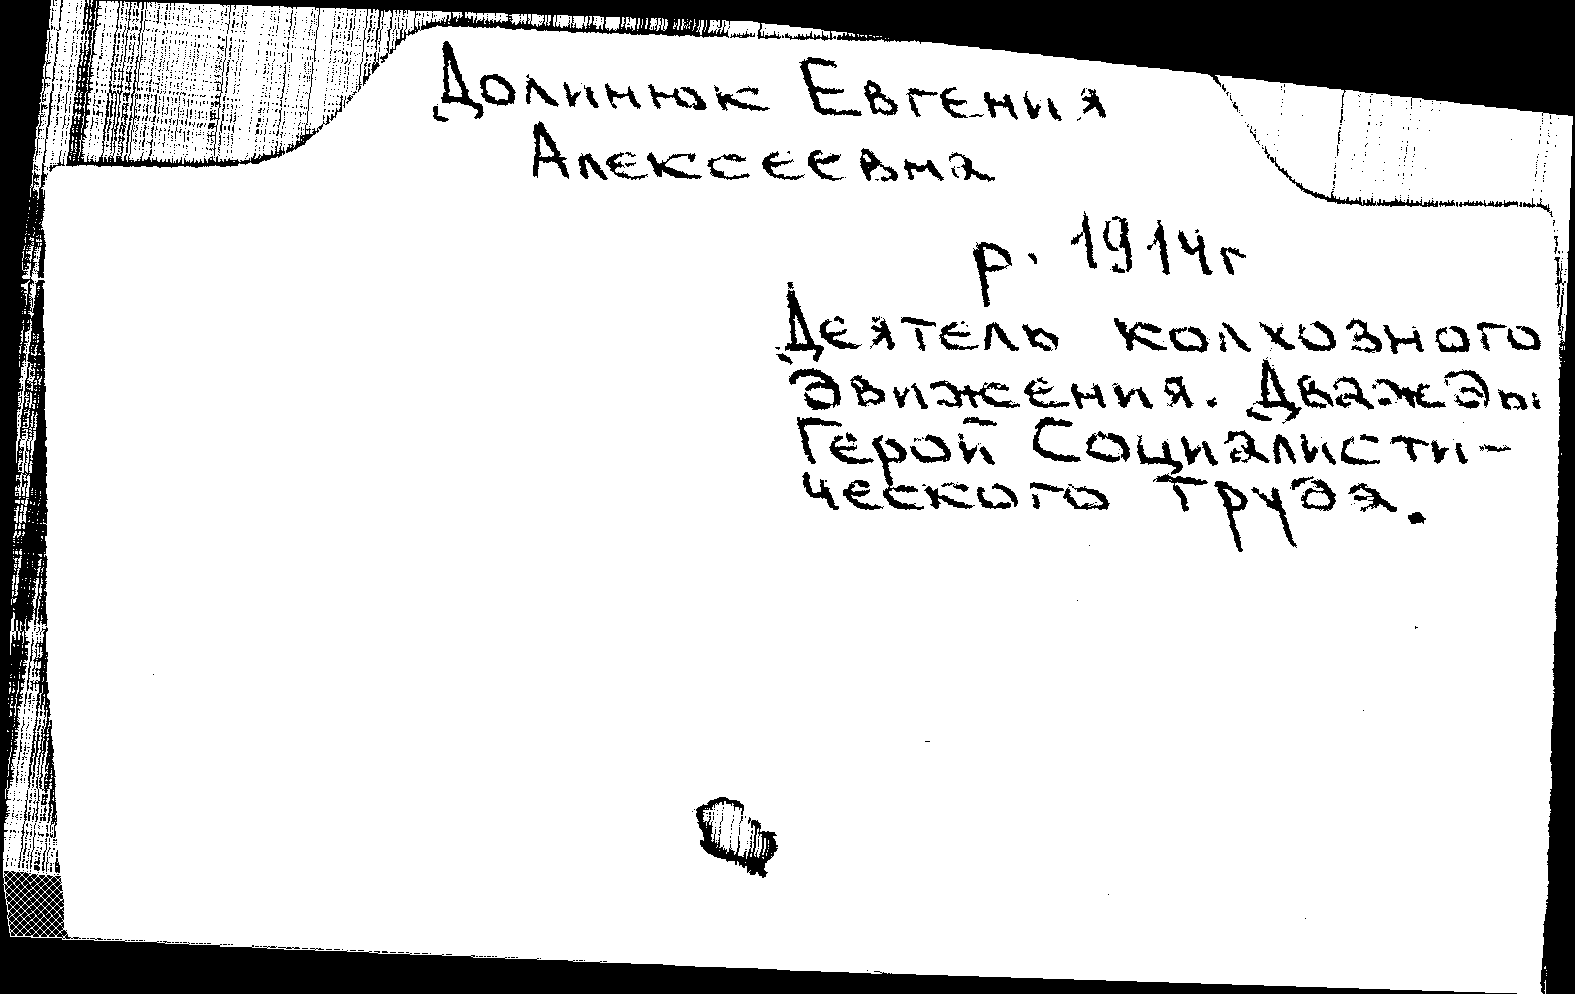 Долинюк Евгения
Алексеевна
р. 1914г
Деятель колхозного
движения. Дважды
Герой Социалисти-
ческого труда.